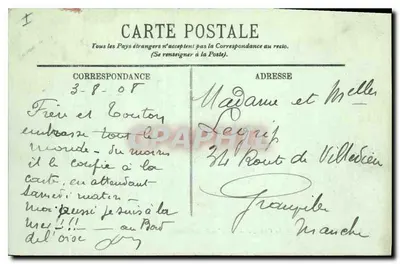 I
CARTE POSTALE
Tous les Pays étrangers n'acceptent pas la Correspondance au recto.
(Se renseigner à la Poste).
CORRESPONDANCE
3-8-08
Frère et Touton
embrasse tout le
monde - du moins
il le confie à la
carte, en attendant
Samedi matin -
moi aussi je suis à la
mer !!! - au Bord
de l'oise
ADRESSE
Madame et Melles
34 Route de Villedieu
Granville
Manche